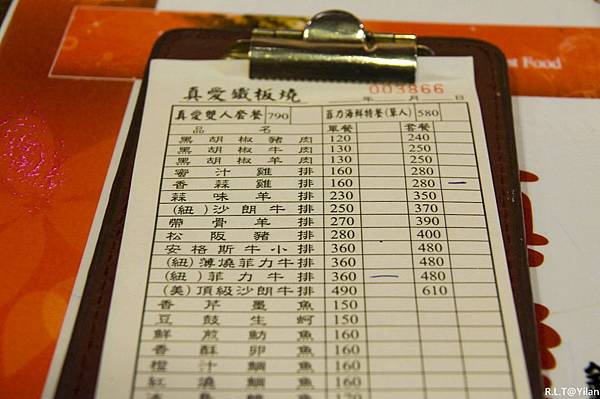 st Food
真愛鐵板燒
003866
年 月 日
真愛雙人套餐 790 菲力海鮮特餐(單人) 580
品名 單餐 套餐
黑胡椒豬肉 120 240
黑胡椒牛肉 130 250
黑胡椒羊肉 130 250
蜜汁雞排 160 280
香蒜雞排 160 280 一
蒜味羊排 230 350
(紐)沙朗牛排 250 370
帶骨羊排 270 390
松阪豬排 280 400
安格斯牛小排 360 480
(紐)薄燒菲力牛排 360 480
(紐)菲力牛排 360 一 480
(美)頂級沙朗牛排 490 610
香芹墨魚 150
豆鼓生蚵 150
鮮煎魴魚 160
香酥卵魚 160
橙汁鯛魚 160
紅燒鯛魚 160
R.L.T@Yilan